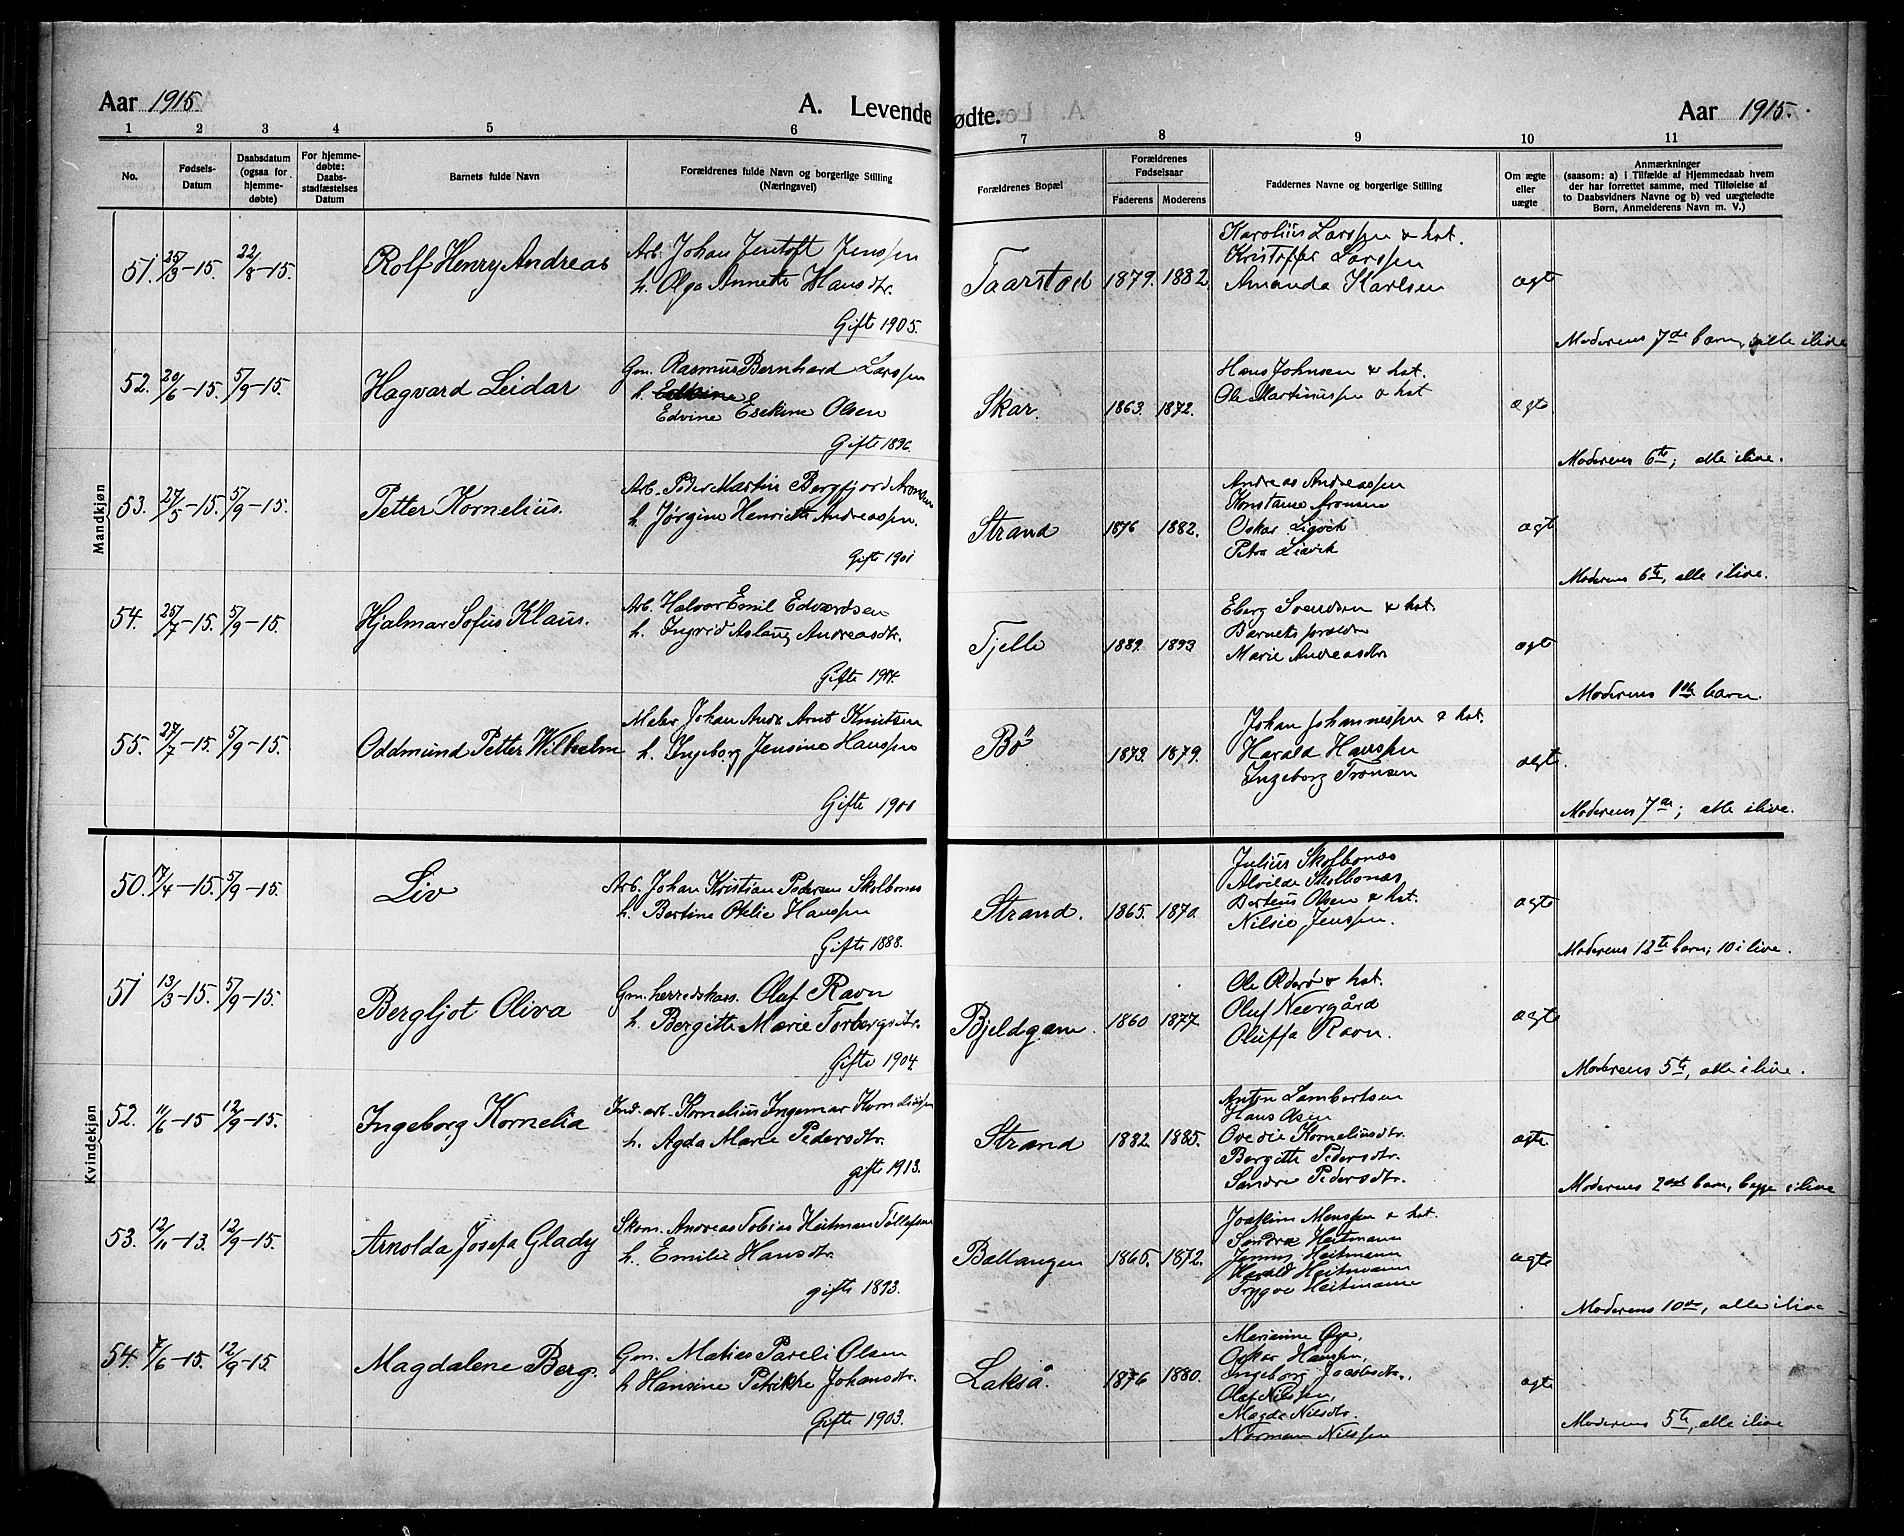 Aar 1915
A. Levendefødte.
Aar 1915.
1 2 3 4 5 6 7 8 9 10 11
No.
Fødsels-
Datum
Daabsdatum
(ogsaa for
hjemme-
døbte)
For hjemme-
døbte:
Daabs-
stadfæstelses
Datum
Barnets fulde Navn
Forældrenes fulde Navn og borgerlige Stilling
(Næringsvei)
Forældrenes Bopæl
Forældrenes
Fødselsaar
Faderens Moderens
Faddernes Navne og borgerlige Stilling
Om ægte
eller
uægte
Anmærkninger
(saasom: a) i Tilfælde af Hjemmedaab hvem
der har forrettet samme, med Tilføielse af
to Daabsvidners Navne og b) ved uægtefødte
Børn, Anmelderens Navn m. V.)
Mandkjøn
51. 25/3-15. 22/8-15. Rolf Henry Andreas
Arb. Johan Jentoft Jenssen
h. Olga Annette Hansdtr.
Gifte 1905.
Taarstad 1879. 1882.
Karolius Larssen & hst.
Kristoffer Larssen
Amanda Karlsen
ægte
Moderens 7de barn, alle ilive
52. 20/6-15. 5/9-15. Hagvard Leidar
Gm. Rasmus Bernhard Larssen
h. Edvine Esekine Olsen
Gifte 1896.
Skar. 1863. 1872.
Hans Johnsen & hst.
Ole Martinussen & hst
ægte
Moderens 6te; alle ilive.
53. 27/5-15. 5/9-15. Petter Kornelius.
Arb. Peder Martin Bergfjord Aronsen
h. Jørgine Henriette Andreassen.
Gifte 1901
Strand 1876 1882.
Andreas Andreassen
Konstanse Aronsen
Oskar Liavik
Petra Liavik
ægte
Moderens 6te, alle ilive.
54. 25/7-15. 5/9-15. Hjalmar Sofus Klaus.
Arb. Halvor Emil Edvardsen
h. Ingrid Aslaug Andreasdtr.
Gifte 1914.
Fjelle 1889. 1893
Eberg Svendsen & hst.
Barnets forældre
Marie Andreasdtr.
ægte
Moderens 1ste barn.
55. 27/7-15. 5/9-15. Oddmund Petter Wilhelm
Maler Johan Andr. Arnt Knutsen
h. Ingeborg Jensine Hanssen
Gifte 1900
Bø 1873. 1879.
Johan Johannessen & hst.
Harald Hanssen
Ingeborg Tronsen
ægte.
Moderens 7de; alle ilive.
Kvindekjøn
50. 17/4-15. 5/9-15. Liv
Arb. Johan Kristian Pedersen Skolbones
h. Bertine Otelie Hanssen
Gifte 1888.
Strand. 1865. 1870.
Julius Skolbones
Alvilde Skolbones,
Berteus Olsen & hst.
Nilsie Jenssen.
ægte
Moderens 12te barn; 10 i live.
51 13/3-15. 5/9-15. Bergljot Oliva
Gm. herredskass. Olaf Ravn
h. Bergitte Marie Torbergsdtr.
Gifte 1904.
Bjeldgam. 1860 1877
Ole Olderø & hst.
Oluf Neergård
Oluffa Ravn.
ægte
Moderens 5te, alle ilive.
52. 11/6-15 12/9-15. Ingeborg Kornelia
Ind. arb. Kornelius Ingemar Korneliussen
h. Agda Marie Pedersdtr.
gifte 1913.
Strand 1882 1885.
Anton Lambertsen
Hans Olsen
Ovedie Korneliusdtr.
Bergitte Pedersdtr.
Sandra Pedersdtr.
ægte
Moderens 2det barn, begge ilive
53. 12/11-13. 12/9-15. Arnolda Josefa Glady
Skom. Andreas Tobias Heitman Tollefsen
h. Emilie Hansdtr.
gifte 1893.
Ballangen 1865. 1872.
Joakim Monssen & hst.
Sandra Heitmann
Jenny Heitmann
Harald Heitmann
Trygve Heitmann
ægte
Moderens 10de, alle ilive
54. 7/6-15. 12/9-15 Magdalene Berg.
Gm. Matias Pareli Olsen
h. Hansine Petrikke Johansdtr.
Gifte 1903.
Lakså. 1876 1880.
Marianne Øye,
Oskar Hanssen,
Ingeborg Joakimsdtr.,
Olaf Nilssen,
Magda Nilsdtr.
Norman Nilssen
ægte
Moderens 5te, alle ilive